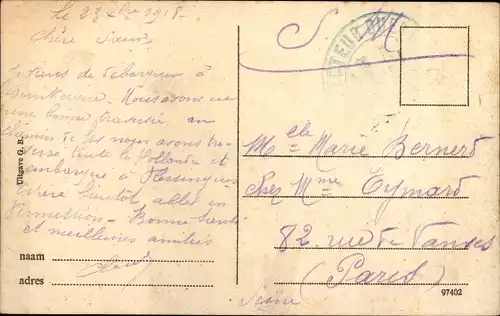 Le 23 Xbre 1918.
Chère Sœur
venons de débarquer à
Dunkerque. Nous avons eu
une bonne traversée en
chemin de fer nous avons tra-
versé toute la Hollande et
embarqué à Flessingue
espère bientôt aller en
Permission. Bonne Santé
et meilleures amitiés
naam
adres
Uitgave G. B.
S. M.
Melle Marie Bernert
chez Mme Eymard
82 rue de Vanves
(Paris)
Seine
97402